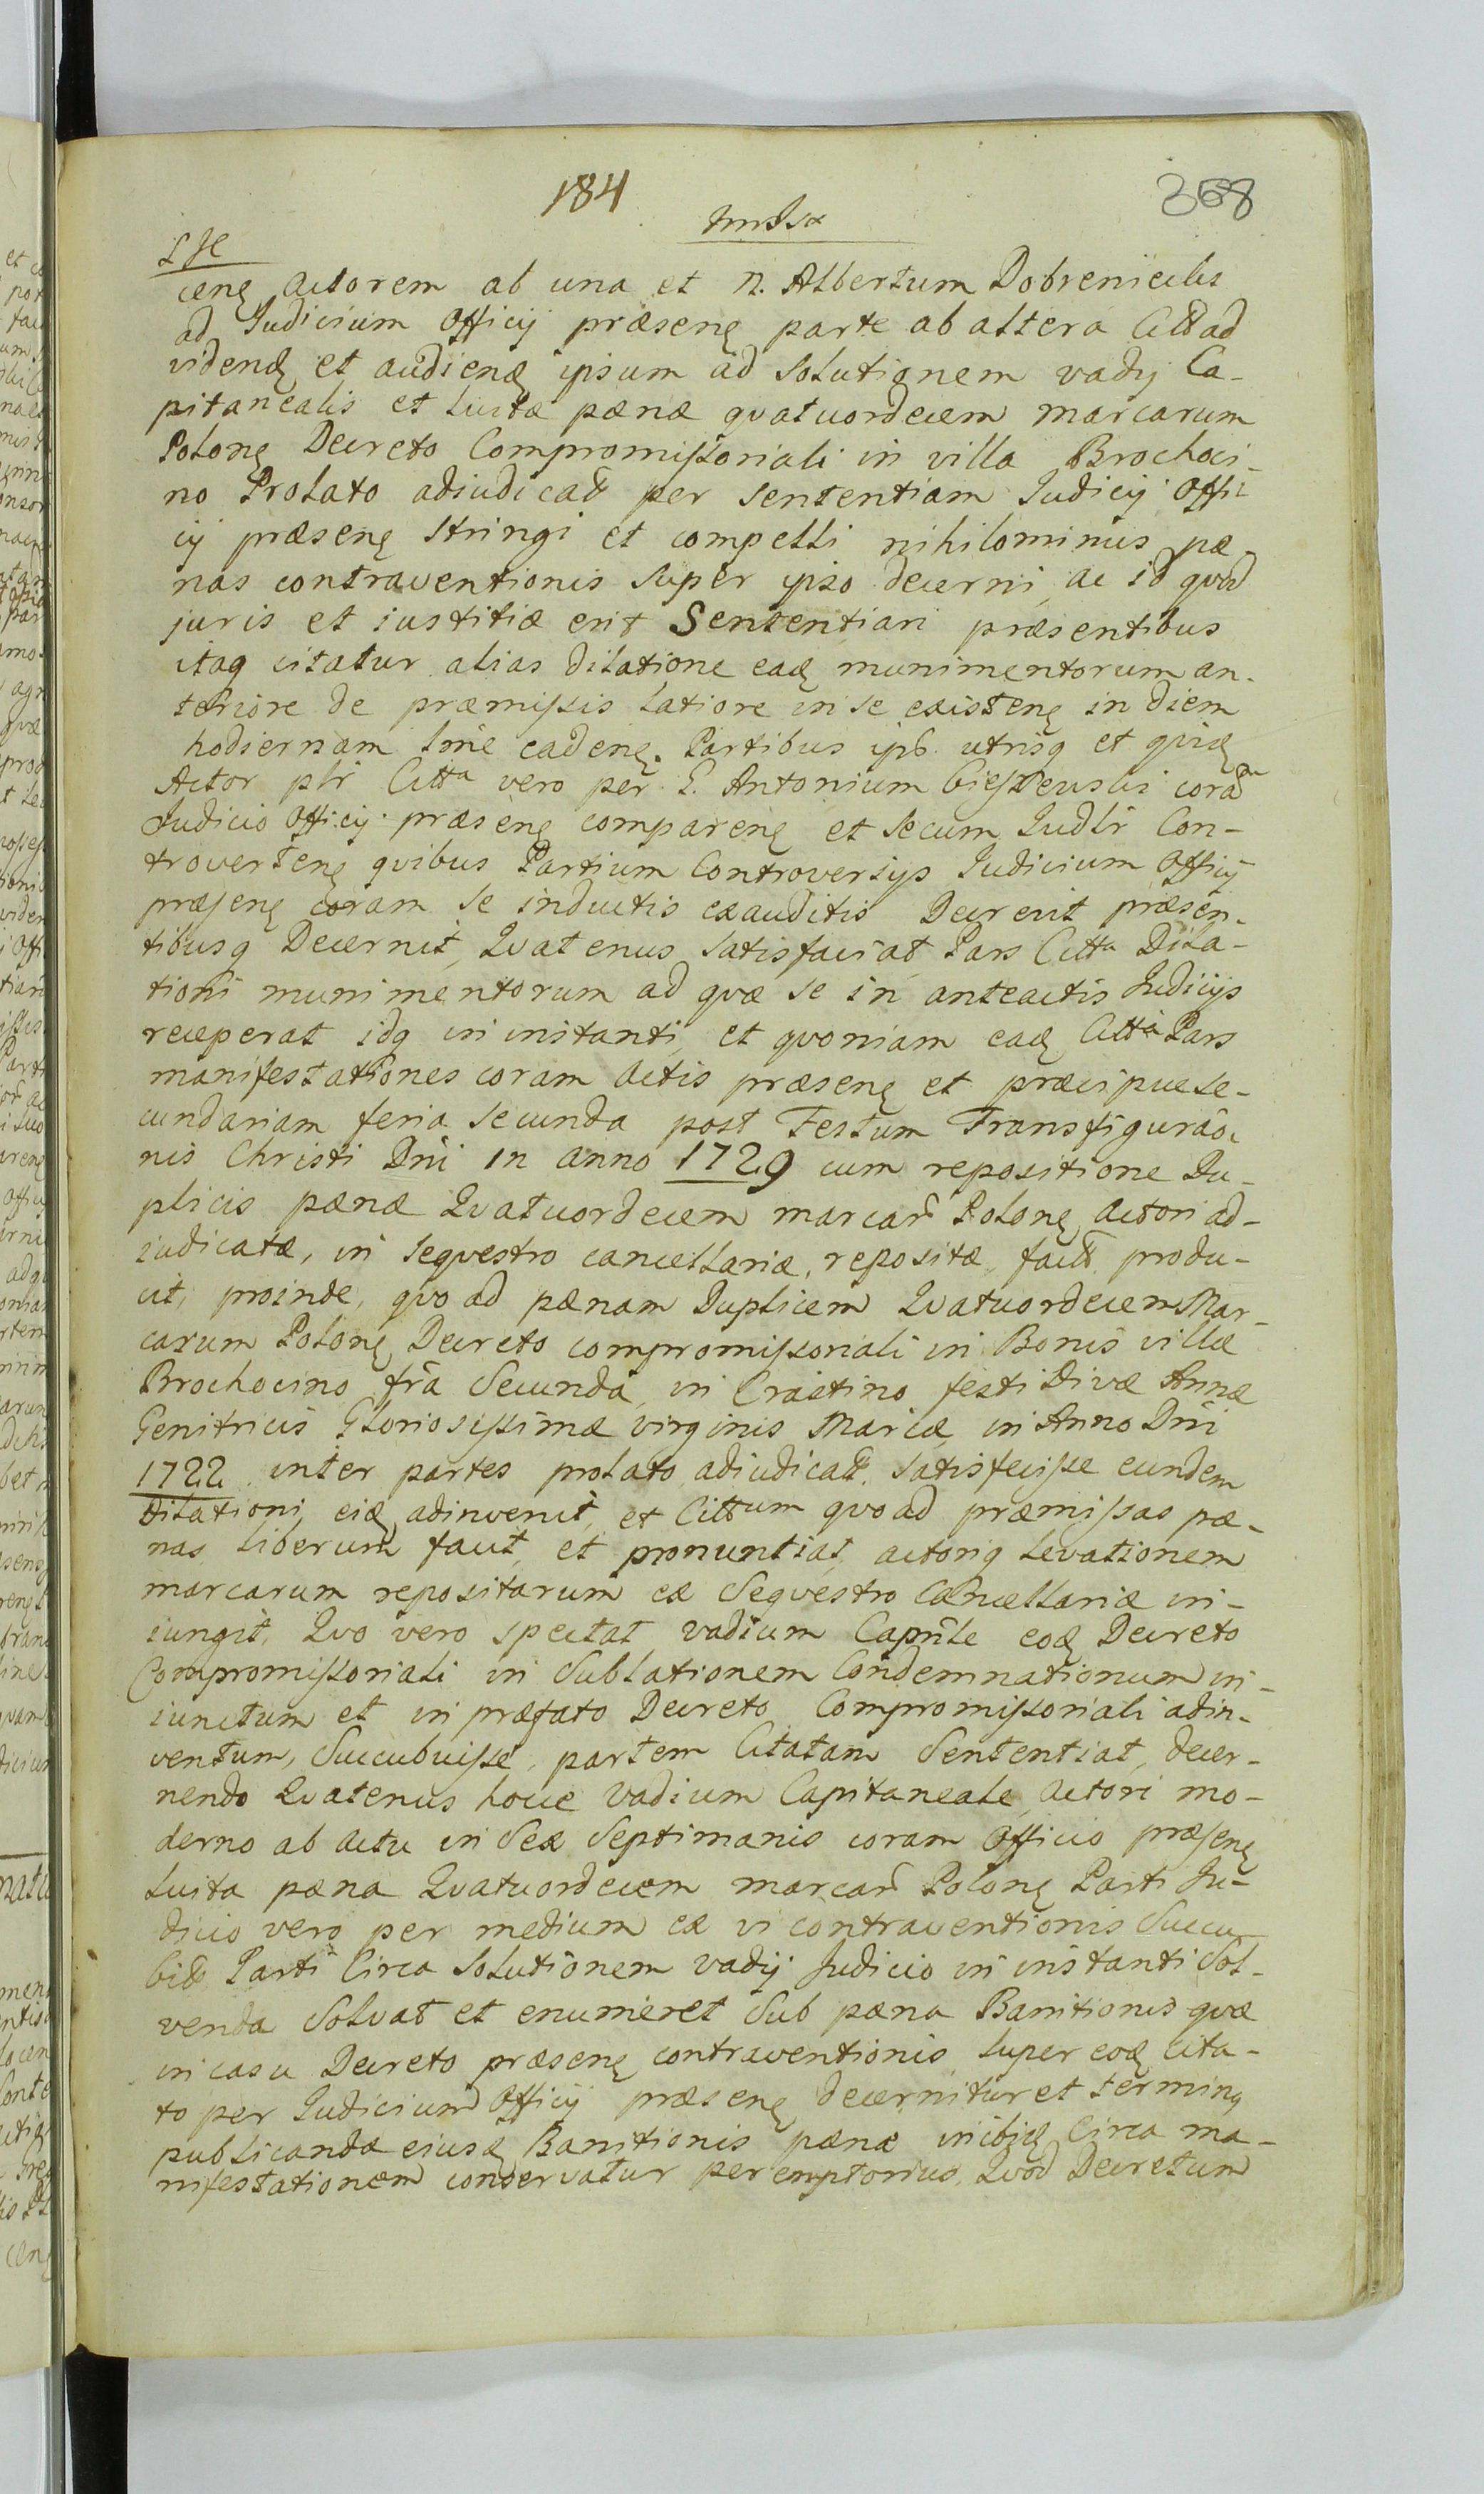 184
368
cenȩ Actorem ab una et N. Albertum Dobrenieclis
ad Judicium Officij præsenȩ parte ab altera Citt ad
videnȩ et audienȩ ipsum ad Solutionem vadij Ca-
pitanealis et Luitæ pænæ qvatuordecem marcarum
Polonȩ Decreto Compromissoriali in villa Brochoci-
no Prolato adiudicatt per Sententiam Judicij Offi-
cij præsenȩ Stringi et compelli nihilominus pæ-
nas contraventionis Super ipso decerni, ac id qvod
juris et iustitiæ erit Sententiari præsentibus
itaq citatur alias dilatione eadȩ munimentorum an-
teriore de præmissis latiore in se existenȩ in diem
hodiernam lmie cadenȩ. Partibus ipb utrisq et qvidȩ
Actor plr Citta vero per G. Antonium coram
Judicio Officij præsenȩ comparenȩ et Secum Judlr Con-
trovertenȩ qvibus Partium Controversijs Judicium Officij
præsenȩ coram Se inductis exauditis Decrevit præsen-
tibusq Decernit, Qvatenus Satisfaciat Pars Citta Dila-
tioni munimentorum ad qvæ Se in anteactis Judicijs
receperat idq in instanti, et qvoniam eadȩ Citta Pars
manifestationes coram Actis præsenȩ et præcipue Se-
cundariam feria Secunda post Festum Transfiguraõi-
nis Christi Dni in anno 1729 cum repositione Du-
plicis pænæ Qvatuordecem marcar Polonȩ Actori ad-
iudicatæ, in Seqvestro cancellariæ, repositæ, factt produ-
cit, proinde, qvo ad pænam Duplicem Qvatuordecem Mar-
carum Polonȩ Decreto compromissoriali in Bonis villæ
Brochocino fra Secunda in Crastino festi Divæ Annæ
Genitricis Gloriosissimæ virginis Mariæ in Anno Dni
1722 inter partes prolato adiudicatt Satisfecisse eundem
dilationi eidȩ adinvenit, et Cittum qvo ad præmissas pæ-
nas liberum facit et pronuntiat, actoriq Levationem
marcarum repositarum ex Seqvestro Cancellariæ in-
iungit. Qvo vero spectat vadium Capnle eodȩ Decreto
Compromissoriali in Sublationem Condemnationum in-
iunctum et in præfato Decreto Compromissoriali adin-
ventum, Succubuisse, partem Citatam Sententiat, decer-
nendo Qvatenus hocce Vadium Capitaneale Actori mo-
derno ab actu in Sex Septimanis coram Officio præsenȩ
Luita pæna Qvatuordecem marcar Polonȩ Parti Ju-
dicio vero per medium ex vi contraventionis Succu-
bido Parti Circa Solutionem vadij Judicio in instanti Sol-
venda Solvat et enumeret Sub pæna Banitionis qvæ
in casu Decreto præsenȩ contraventionis Super eodȩ Cita-
to per Judicium Officij præsenȩ decernitur et terminȩ
publicandæ eiusdȩ Banitionis pænæ inibidȩ Circa ma-
nifestationem conservatur peremptorius. Qvod Decretum